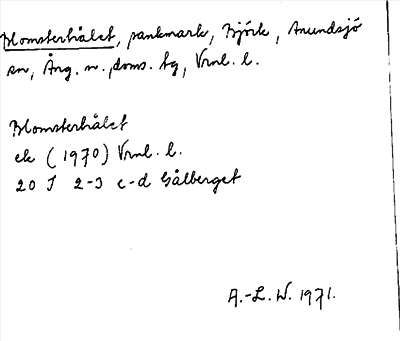 Blomsterhålet, sankmark, Björk, Anundsjö
sn, Ång. n. doms. tg, Vrnl. l.
Blomsterhålet
ek (1970) Vrnl. l.
20 I 2-3 c-d Gålberget
A.-L. W. 1971.